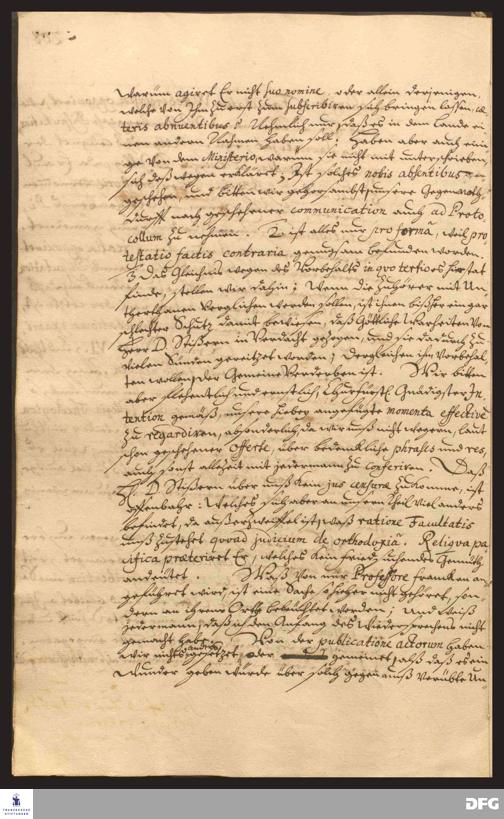 warum agiret Er nicht suo nomine, oder allein derjenigen,
welche von Ihm zu erst zum subscribiren sich bringen lassen, cæ-
teris abnuentibus? Nehmlich nur, daß es in dem Lande ei-
nen andern Nahmen haben soll; haben aber auch eini-
ge von dem Ministerio, warum sie nicht mit unterschrieben,
sich deßwegen erkläret; Ist solches nobis absentibus
geschehen, und bitten wir gehorsambst, unsere Gegen noth-
durfft nach geschehener communication auch ad Proto-
collum zu nehmen. 2 ist alles nur pro forma, weil pro-
testatio factis contraria genugsam befunden worden.
3 Deßgleichen wegen des Vorbehalts in quo tertio es für statt
finde, stellen wir dahin; Wenn die Zuhörer mit Un-
therthanen verglichen werden sollen, ist ihnen bißher ein gar
schlechter Schutz damit bewiesen, daß Göttliche Warheiten von
Herr D. Stißern in Verdacht gezogen, und sie dadurch zu
vielen Sünden gereitzet worden; dergleichen ihn Vorbehal-
ten wollen, der Gemeine Verderben ist. Wir bitten
aber flehentlich und ernstlich, Churfürstl. Gnädigster In-
tention gemäß, unsere hieher angefügte momenta effective
zu regardiren, absonderlich da wir uns nicht wegern, laut
schon geschehener offerte, über bedenckliche phrases und res,
auch sonst allezeit mit jedermann zu conferiren. Daß
H. D. Stißern über uns kein jus censuræ zukomme, ist
Offenbahr: Welches sich aber an unsern Theil viel anders
befindet, da ausser zweiffel ist, was ratione Facultatis
uns zustehet quoad judicium de orthodoxiâ. Reliqua pa-
cifica præteriret Er, welches kein fried suchendes Gemüth
andeutet. Waß von mir Professore Francken an-
geführet wird, ist eine Sache so hieher nicht gehöret, son-
dern an ihrem Orth beleuchtet worden; und weiß
jedermann, daß ich den Anfang des Wiedersprechens nicht
gemacht habe. Von der publicatione actorum haben
wir nichts anders gesetzet, oder gemeinet, als daß es ein
Wunder geben würde über solch gegen uns verübte Un-